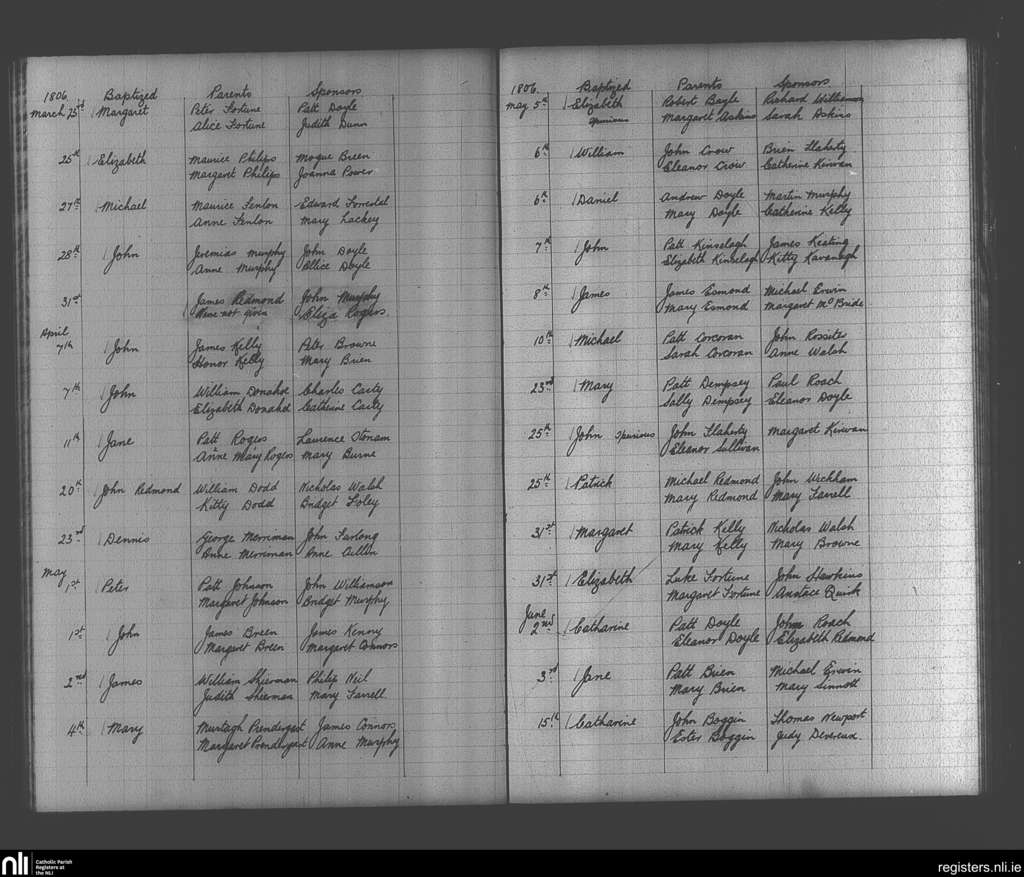 1806 Baptized Parents Sponsors
March 25th Margaret Peter Fortune Patt Doyle
Alice Fortune Judith Dunn
25th Elizabeth Maurice Philips Mogue Breen
Margaret Philips Joanna Power
27th Michael Maurice Fenlon Edward Forrestel
Anne Fenlon Mary Lackey
28th John Jeremias Murphy John Doyle
Anne Murphy Allice Doyle
31st James Redmond John Murphy
None not given Eliza Rogers
April
7th John James Kelly Peter Browne
Honor Kelly Mary Brien
7th John William Donahoe Charles Carty
Elizabeth Donahoe Catherine Carty
11th Jane Patt Rogers Laurence
Anne Mary Rogers Mary Burne
20th John Redmond William Dodd Nicholas Walsh
Kitty Dodd Bridget Foley
23rd Dennis George Merriman John Furlong
Anne Merriman Anne Cullen
May
1st Peter Patt Johnson John Williamson
Margaret Johnson Bridget Murphy
1st John James Breen James Kenny
Margaret Breen Margaret Connors
2nd James William Shierman Philip Neil
Judith Shierman Mary Farrell
4th Mary Murtagh Prendergast James Connors
Margaret Prendergast Anne Murphy
1806 Baptized Parents Sponsors
May 5th Elizabeth Robert Bayle Richard Williamson
Spurious Margaret Askins Sarah Askins
6th William John Crow Brien Flaherty
Eleanor Crow Catherine Kirwan
6th Daniel Andrew Doyle Martin Murphy
Mary Doyle Catherine Kelly
7th John Patt Kinselagh James Keating
Elizabeth Kinselagh Kitty Kavanagh
8th James James Esmond Michael Erwin
Mary Esmond Margaret McBride
10th Michael Patt Corcoran John Rossiter
Sarah Corcoran Anne Walsh
23rd Mary Patt Dempsey Paul Roach
Sally Dempsey Eleanor Doyle
25th John Spurious John Flaherty Margaret Kirwan
Eleanor Sullivan
25th Patrick Michael Redmond John Wickham
Mary Redmond Mary Farrell
31st Margaret Patrick Kelly Nicholas Walsh
Mary Kelly Mary Browne
31st Elizabeth Luke Fortune John Hawkins
Margaret Fortune Anstace Quirk
June
2nd Catharine Patt Doyle John Roach
Eleanor Doyle Elizabeth Redmond
3rd Jane Patt Brien Michael Erwin
Mary Brien Mary Sinnott
15th Catharine John Boggin Thomas Newport
Ester Boggin Judy Devereux
nli Catholic Parish
Registers at
the NLI
registers.nli.ie